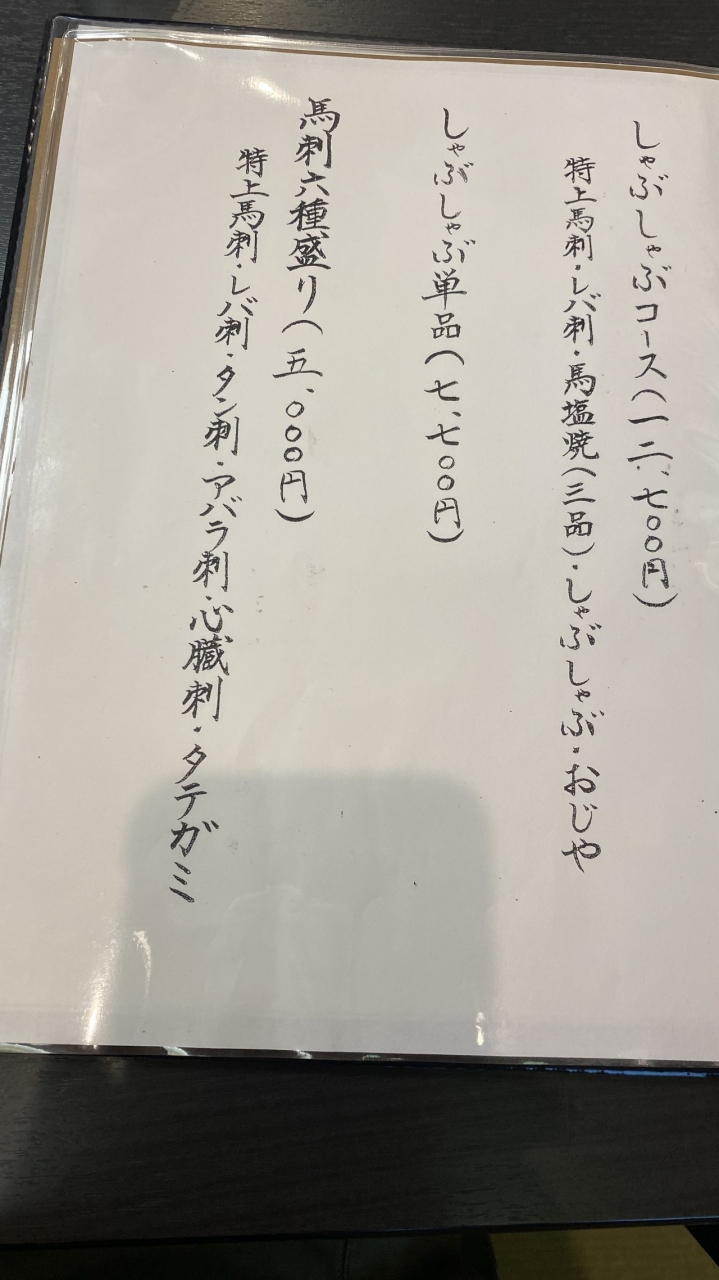 しゃぶしゃぶコース(一二、七〇〇円)
特上馬刺・レバ刺・馬塩焼(三品)・しゃぶしゃぶ・おじや
しゃぶしゃぶ単品(七、七〇〇円)
馬刺六種盛り(五、〇〇〇円)
特上馬刺・レバ刺・タン刺・アバラ刺・心臓刺・タテガミ